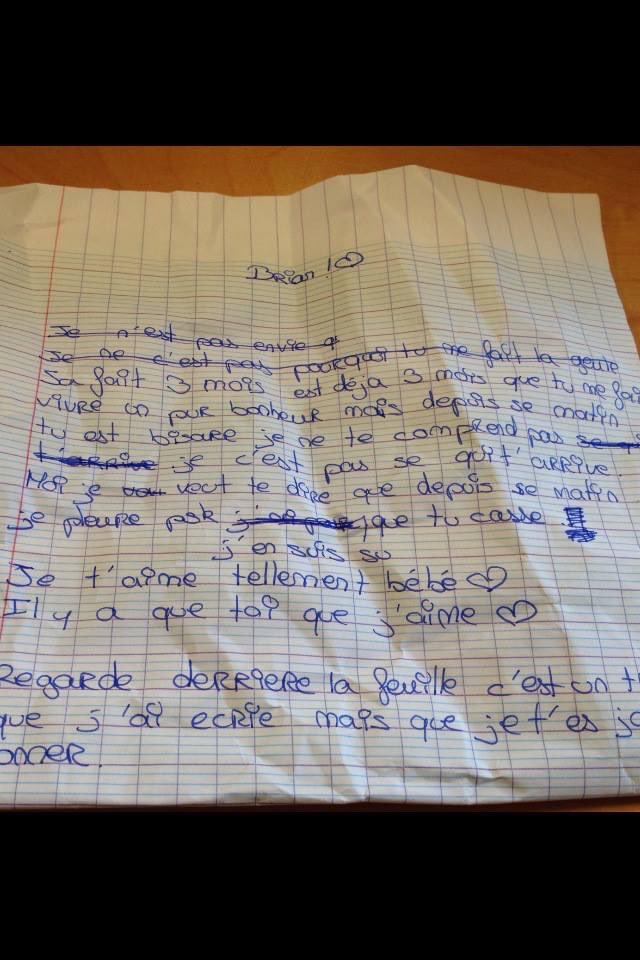 Brian !♡
Je n'est pas envie q
Je ne c'est pas pourquoi tu me fait la geule
Sa fait 3 mois est déja 3 mois que tu me fai
vivre un pur bonheur mais depuis se matin
tu est bisare je ne te comprend pas
t'arrive je c'est pas se qui t'arrive.
Moi je veut te dire que depuis se matin
je pleure pask que tu casse.
j'en suis su
Je t'aime tellement bébé ♡
Il y a que toi que j'aime ♡
Regarde derriere la feuille c'est un t
que j'ai ecrie mais que je t'es ja
onner.